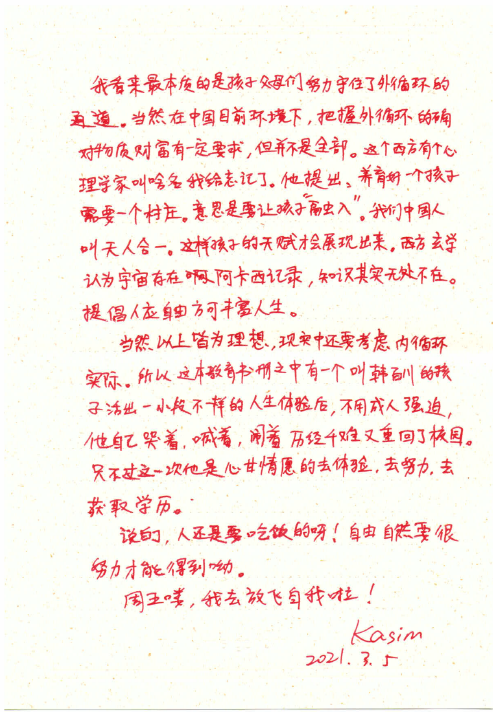 我看来最本质的是孩子父母们努力守住了外循环的
通道。当然在中国目前环境下，把握外循环的确
对物质财富有一定要求，但并不是全部。这个西方有个心
理学家叫啥名我给忘记了。他提出、养育好一个孩子
需要一个村庄。意思是要让孩子"融入"。我们中国人
叫天人合一。这样孩子的天赋才会展现出来。西方玄学
认为宇宙存在啊阿卡西记录，知识其实无处不在。
提倡人应自由方可丰富人生。
当然以上皆为理想，现实中还要考虑内循环
实际。所以这本教育书册之中有一个叫韩百川的孩
子活出一小段不一样的人生体验后，不用成人强迫，
他自己哭着，喊着，闹着历经千难又重回了校园。
只不过这一次他是心甘情愿的去体验，去努力，去
获取学历。
说白了，人还是要吃饭的呀！自由自然要很
努力才能得到呦。
周五喽，我去放飞自我啦！
Kasim
2021.3.5